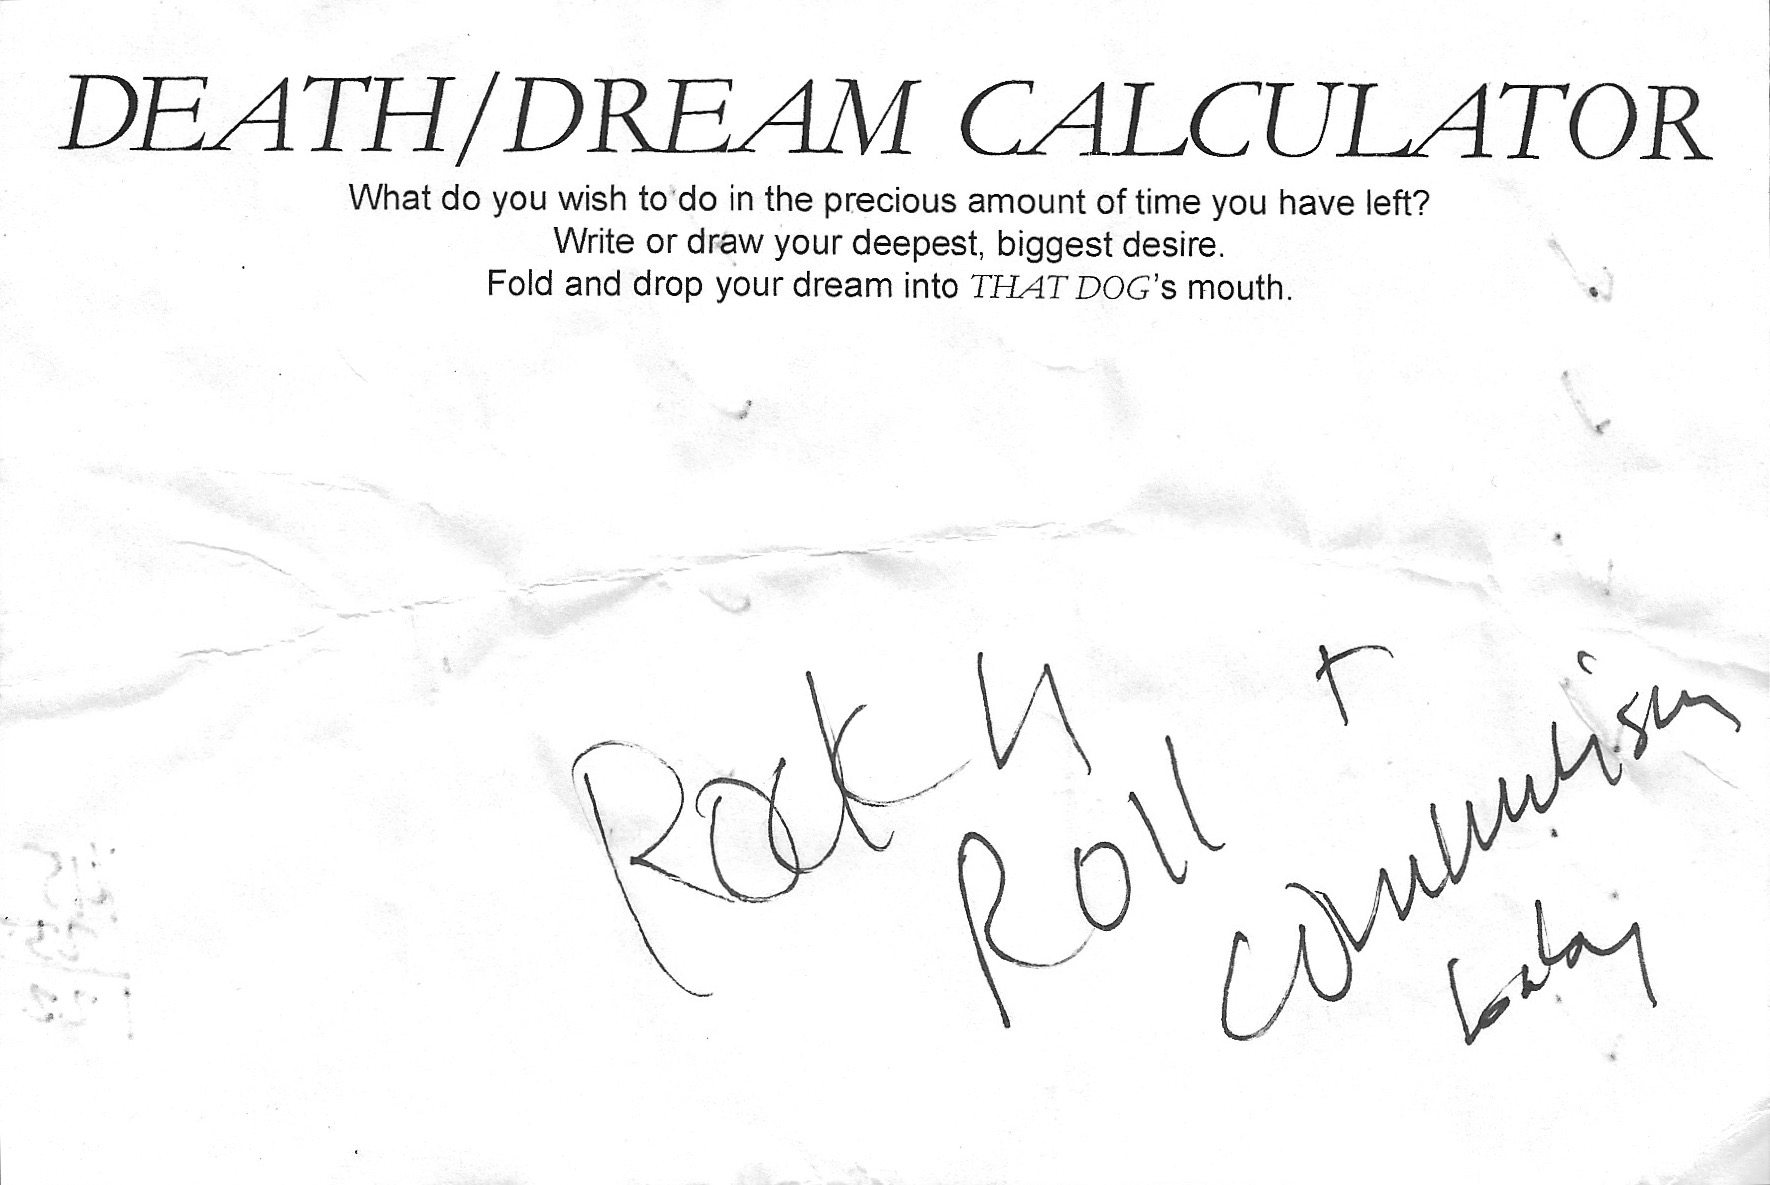 DEATH/DREAM CALCULATOR
What do you wish to do in the precious amount of time you have left?
Write or draw your deepest, biggest desire.
Fold and drop your dream into THAT DOG's mouth.
Rock n
Roll +
communism
baby